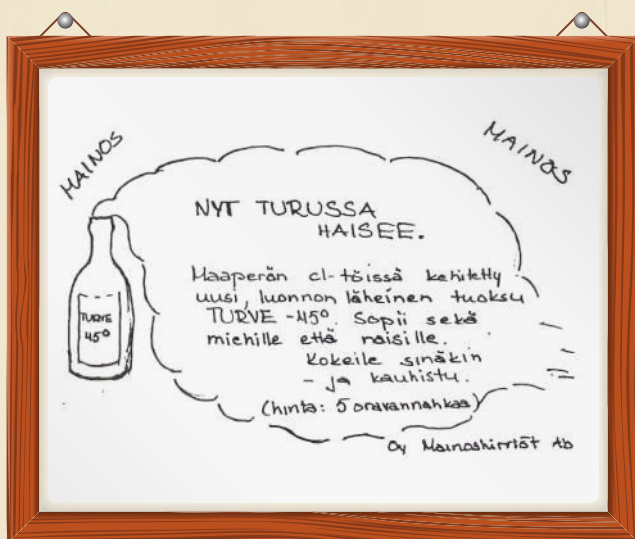 MAINOS
MAINOS
NYT TURUSSA
HAISEE.
Maaperän cl-töissä kehitetty
uusi, luonnon läheinen tuoksu
TURVE -45°. Sopii sekä
miehille että naisille.
Kokeile sinäkin
- ja kauhistu.
(hinta: 5 oravannahkaa)
TURVE
45°
Oy Mainoshirmöt Ab